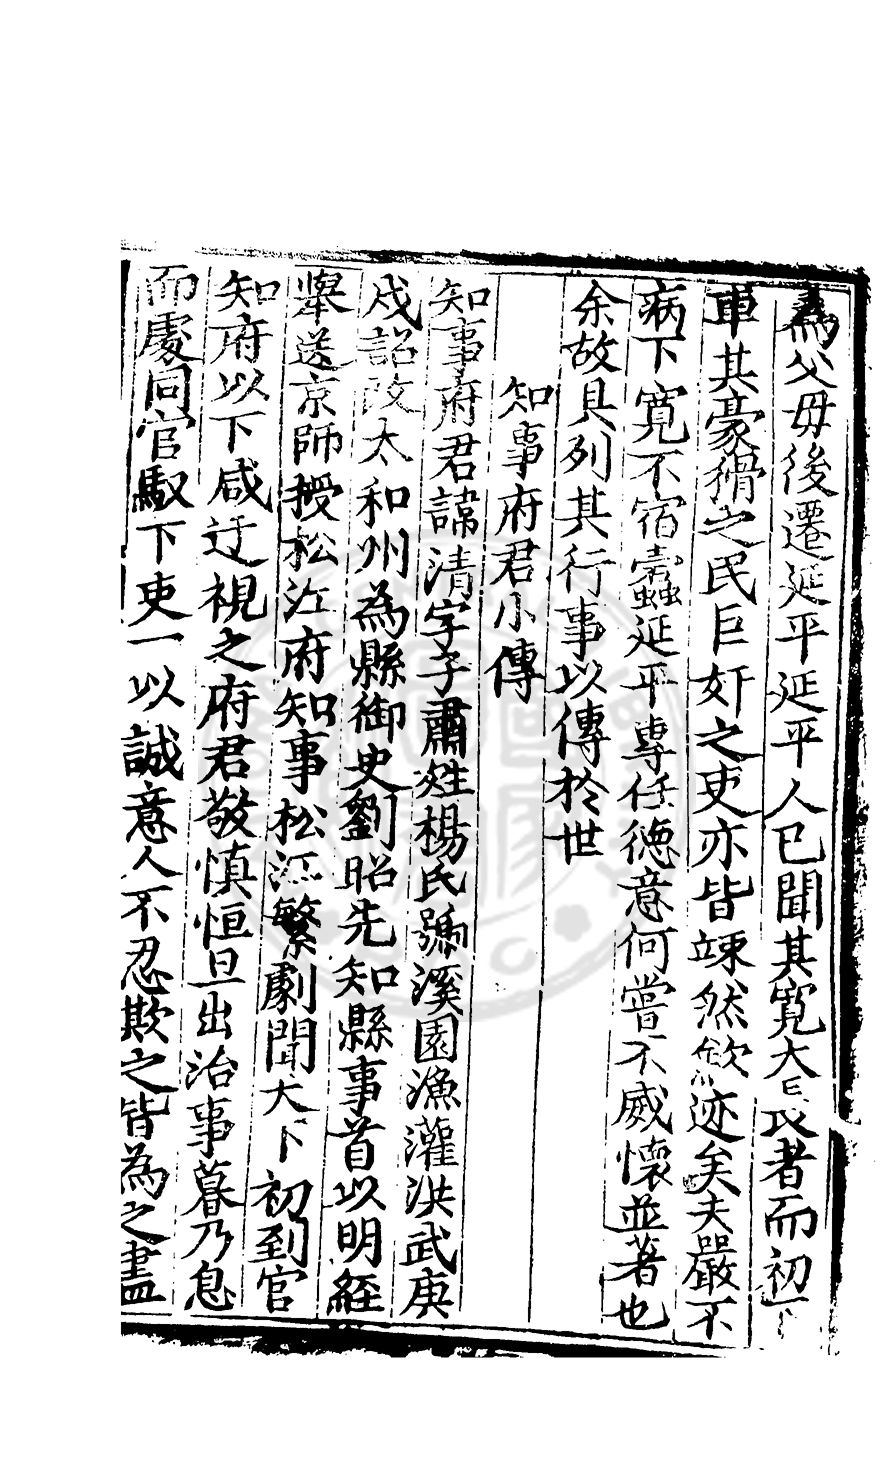 為父毋後遷延平延平人已聞其寬大長者而初下
車其豪猾之民巨奸之吏亦皆竦然歛迹矣夫嚴不
病下寬不宿蠹延平專任德意何嘗不威懷並著也
余故具列其行事以傳於世
知事府君小傳
知事府君諱清字子肅姓楊氏號溪園漁灌洪武庚
戌詔改太和州為縣御史劉昭先知縣事首以明經
舉送京師授松江府知事松江繁劇聞天下初到官
知府以下咸迂視之府君敬慎恒旦出治事暮乃息
而處同官馭下吏一以誠意人不忍欺之皆為之盡